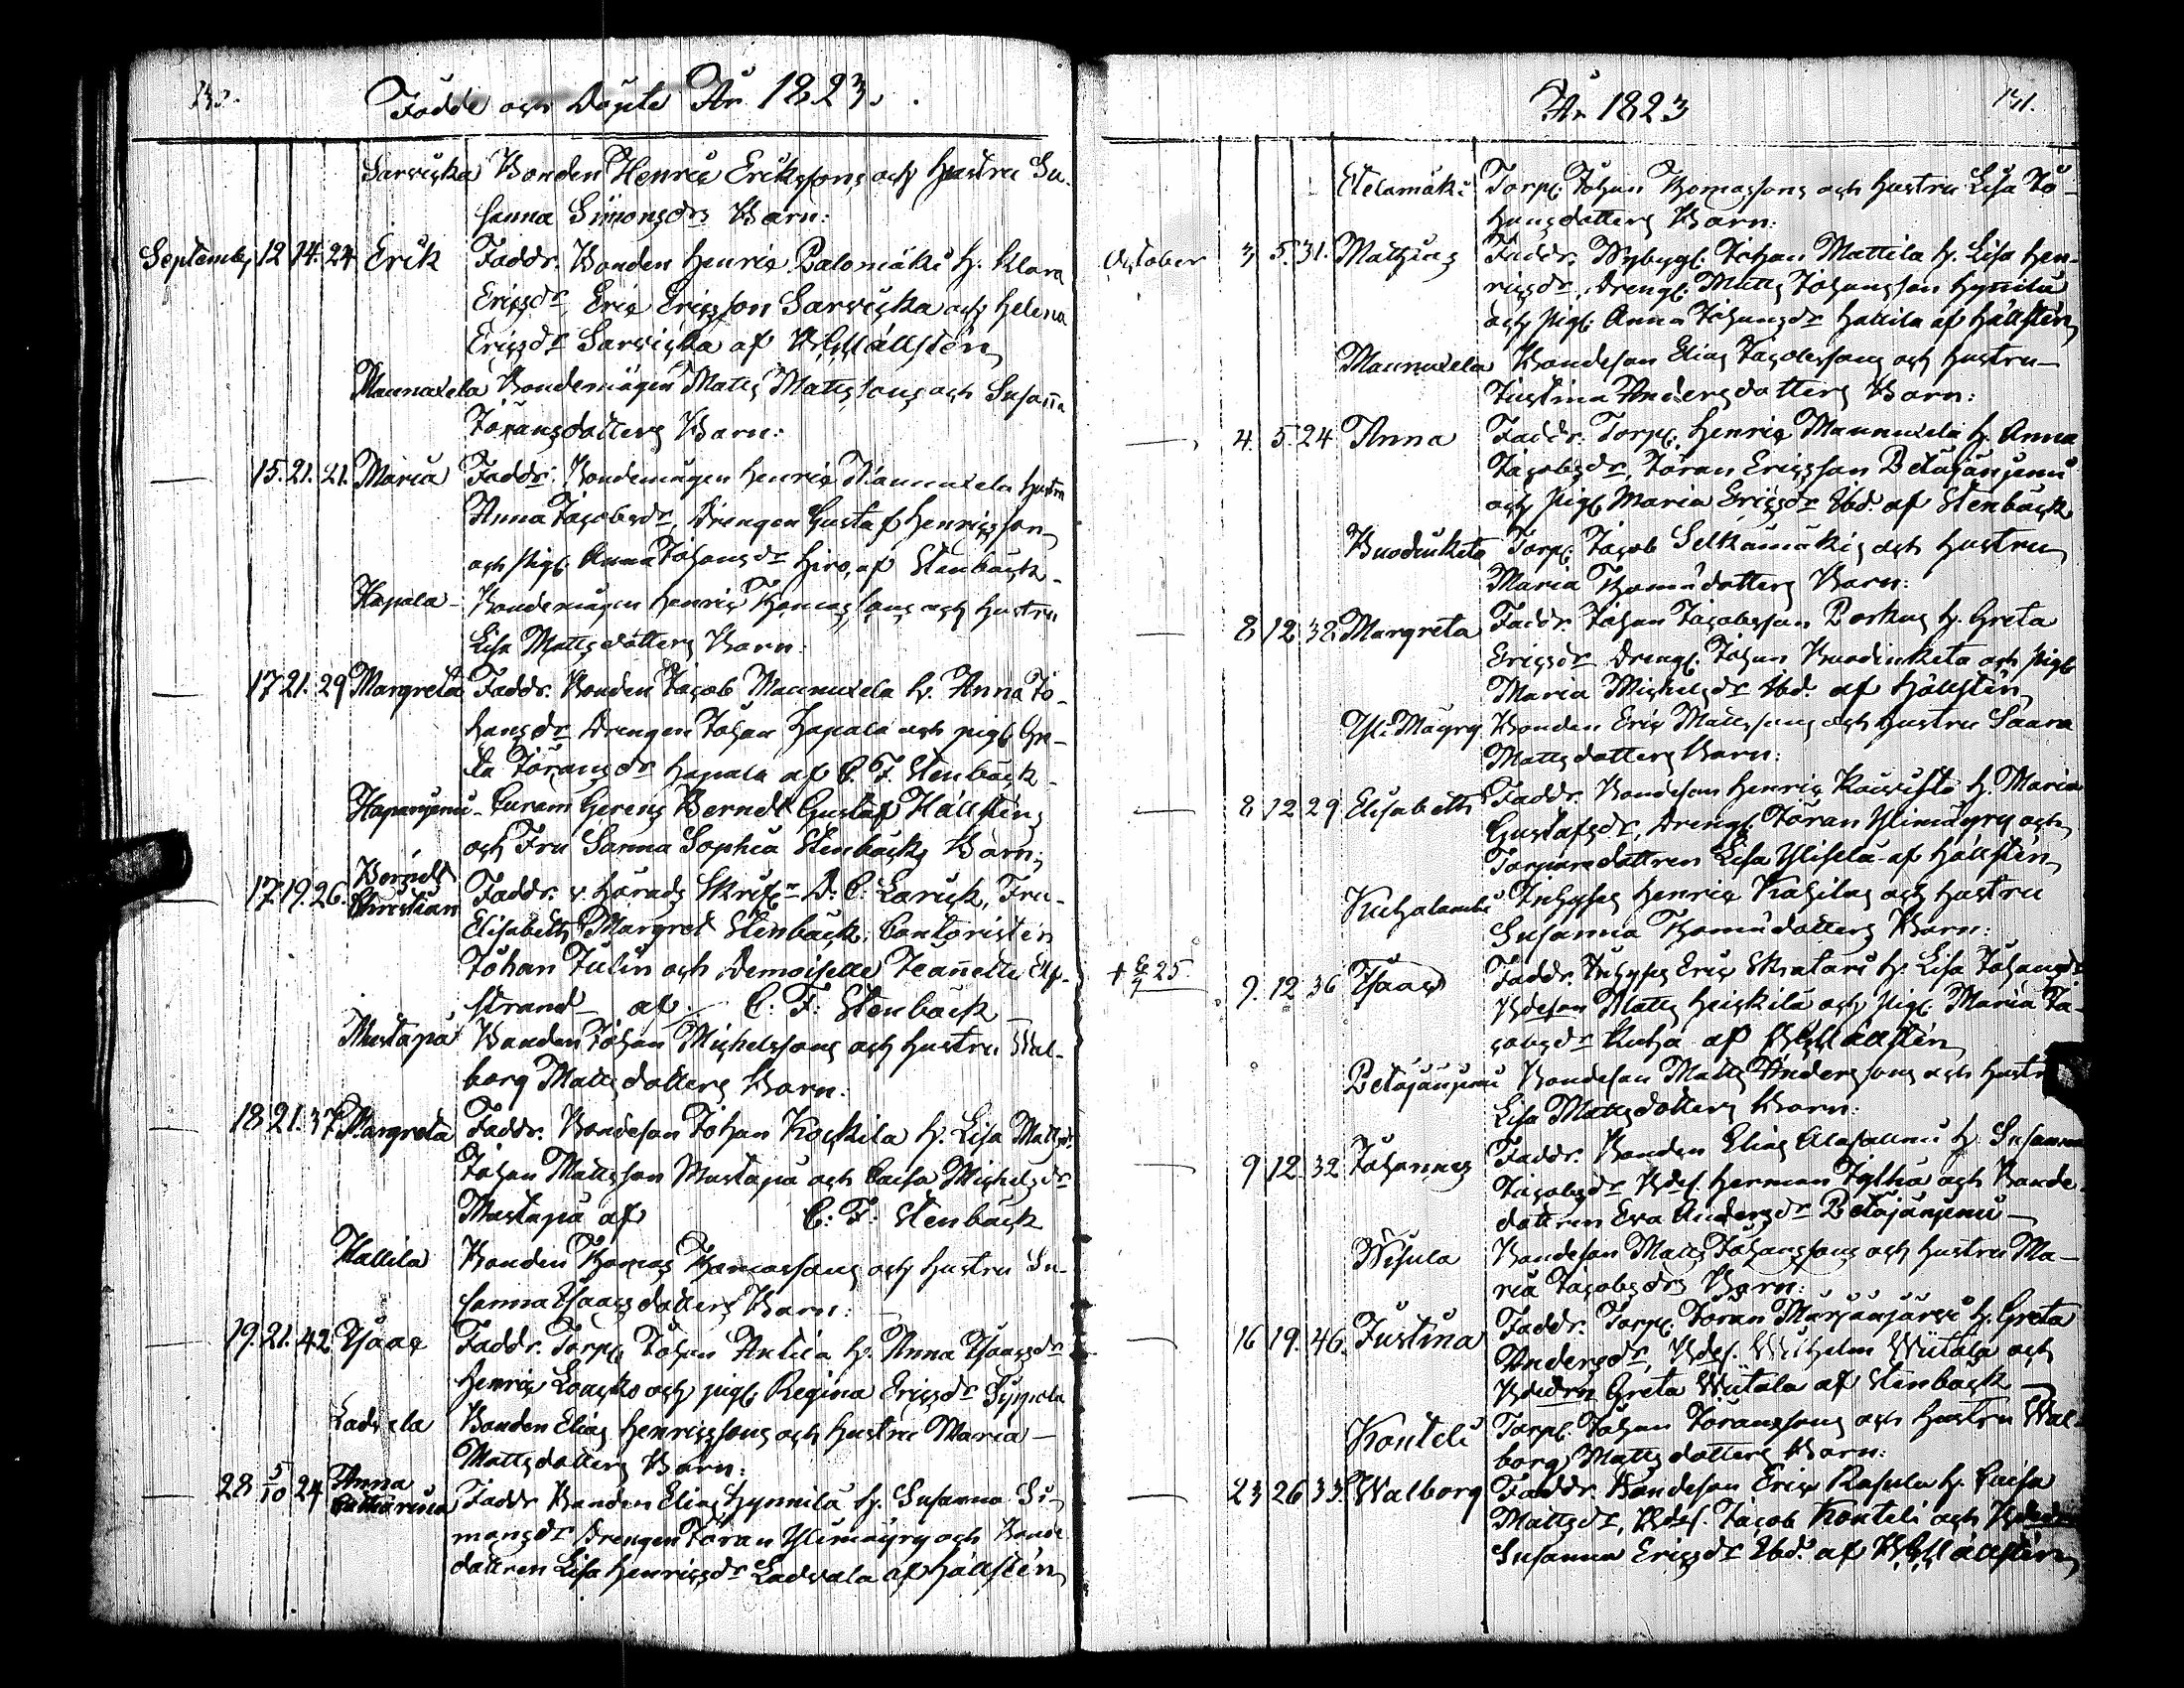 Födde och Döpte År 1823.
Sarvicka Bonden Henric Erikssons och Hustru Su-
sanna Simonsdrs Barn:
Septemb. 12 14. 24 Erik Faddr. Bonden Henric Palomäki H. Klara
Ericsdr, Eric Ericsson Sarvicka och Helena
Ericsdr Sarvicka af BGHällstén
Maunuxela Bondemågen Matts Mattssons och Susanna
Göransdotters Barn:
15. 21. 21. Maria Faddr. Bondemågen Henric Maunuxela Hustru
Anna Jacobsdr, Drengen Gustaf Henricsson
och pig. Anna Johansdr Hiro, af Stenbäck
Hapala Bondemågen Henric Thomassons och Hustru
Lisa Mattsdotters Barn:
17 21. 29 Margreta Faddr. Bonden Jacob Maunuxela H. Anna Jo-
hansdr Drengen Johan Hapala och pig. Gre-
ta Göransdr Hapala af C. F. Stenbäck
Haparjenni Curam Gerens Berndt Gustaf Hällsténs
och Fru Sanna Sophia Stenbäcks Barn:
17. 19. 26. Berndt Christian Faddr. v. Härads Skrifr D. C. Laruk, Fru
Elisabeth Margret Stenbäck, Cantoristen
Johan Julin och Demoiselle Jeannette Elf-
strand af C: F: Stenbäck
Mustapä Bonden Johan Michelssons och Hustru Wal-
borg Mattsdotters Barn:
18 21. 37 Margreta Faddr. Bondeson Johan Kockila H. Lisa Mattsdr
Johan Mattsson Mustapä och Caisa Michelsdr
Mustapä af C: F: Stenbäck
Hallila Bonden Thomas Thomassons och Hustru Su-
sanna Isaacsdotters Barn:
19. 21. 42. Isaac Faddr. Torp. Johan Antila H. Anna Isaacsdr
Henric Loucko och pig. Regina Ericsdr Syppola
Ladvala Bonden Elias Henricssons och Hustru Maria
Mattsdotters Barn:
28 5/10 24 Anna Catharina Faddr Bonden Elias Hynnilä H. Susanna Si-
monsdr Drengen Göran Ylimäyry och Bonde
dottren Lisa Henricsdr Ladvala af Hällstén
År 1823 131.
Etelämäki Torp. Johan Thomassons och Hustru Lisa Jo-
hansdotters Barn:
October 3 5. 31. Mathias Faddr. Nybygg. Johan Mattila H. Lisa Hen-
ricsdr, Dreng. Matts Johansson Hynnilä
och pig. Anna Johansdr Hallila af Hällstén
Maunuxela Bondeson Elias Jacobssons och Hustru
Justina Andersdotters Barn:
4. 5. 24 Anna Faddr. Torp. Henric Maunuxela H. Anna
Jacobsdr, Göran Ericsson Petäjänjemi
och pig. Maria Ericsdr Ibd. af Stenbäck
Buodinketo Torp. Jacob Selkämäkis och Hustru
Maria Thomædotters Barn:
8 12. 38. Margreta Faddr. Johan Jacobsson Porkus H. Greta
Ericsdr Dreng. Johan Buodinketo och pig.
Maria Michelsdr Ibd. af Hällstén
Yli Mäyry Bonden Eric Mattssons och Hustru Saara
Mattsdotters Barn:
8 12 29 Elisabeth Faddr. Bondeson Henric Koivisto H. Maria
Gustafsdr, Dreng. Göran Ylimäyry och
Torparedottren Lisa Ylisela af Hällstén
Kuhalambi Inhyses Henric Kahilas och Hustru
Susanna Thomædotters Barn:
+ 6/7 25.
9. 12 36 Isaac Faddr. Inhyses Eric Skratari H. Lisa Johansdr
Bdeson Matts Heickilä och pig. Maria Ja-
cobsdr Kuha af BGHällstén
Petäjänjemi Bondeson Matts Anderssons och Hustr
Lisa Mattsdotters Barn:
9 12. 32 Johannes Faddr. Bonden Elias Alasalmi H. Susanna
Jacobsdr Bdes. Herman Jylhä och Bonde-
dottren Eva Andersdr Petäjänjemi
Wesula Bondeson Matts Johanssons och Hustru Ma-
ria Jacobsdrs Barn:
16 19. 46. Justina Faddr. Torp. Göran Märjänjärvi H. Greta
Andersdr, Bdes. Wilhelm Wiitala och
Bdedrn Greta Wiitala af Stenbäck
Konteli Torp. Johan Göranssons och Hustru Wal-
borg Mattsdotters Barn:
23 26 33. Walborg Faddr. Bondeson Eric Rasula H. Caisa
Mattsdr, Bdes. Jacob Konteli och
Susanna Ericsdr Ibd. af BGHällstén